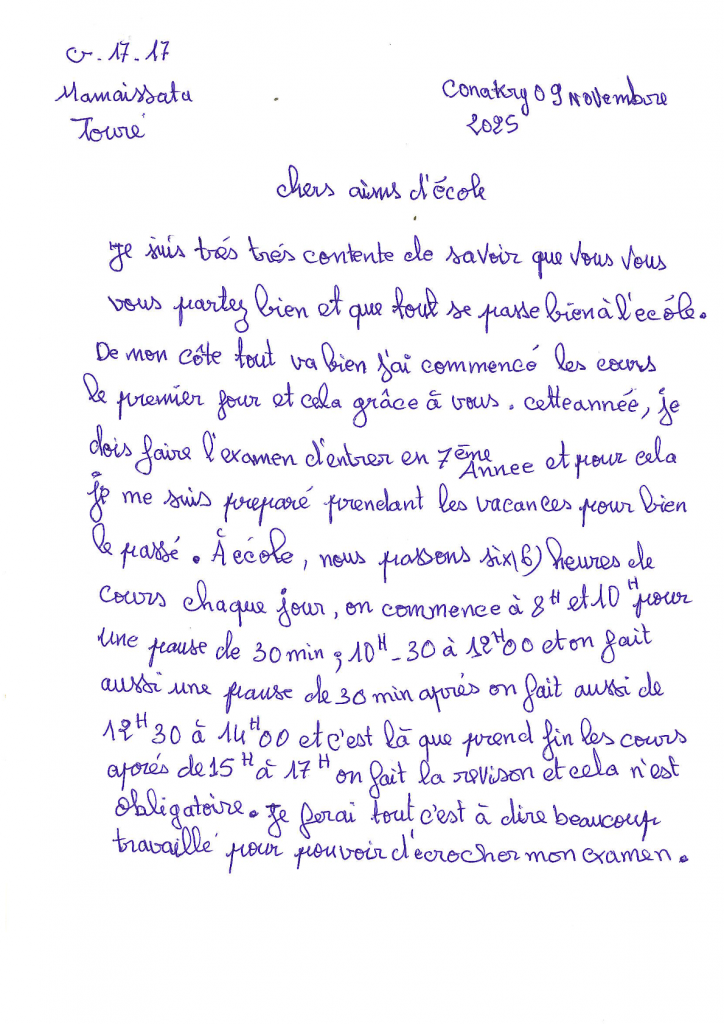 G.17.17
Mamaissata
Touré
Conakry 09 Novembre
2025
chers aims d'école
Je suis trés trés contente de savoir que vous vous
vous partez bien et que tout se passe bien à l'ecóle.
De mon côte tout va bien j'ai commencé les cours
le premier jour et cela grâce à vous. cette année, je
dois faire l'examen d'entrer en 7ème Annee et pour cela
je me suis preparé prendant les vacances pour bien
le passé. À école, nous passons six(6) heures de
cours chaque jour, on commence à 8H et 10H pour
une pause de 30 min ; 10H-30 à 12H00 et on fait
aussi une pause de 30 min aprés on fait aussi de
12H30 à 14H00 et c'est là que prend fin les cours
aprés de 15H à 17H on fait la revison et cela n'est
obligatoire. Je ferai tout c'est à dire beaucoup
travaillé pour pouvoir d'écrocher mon examen.